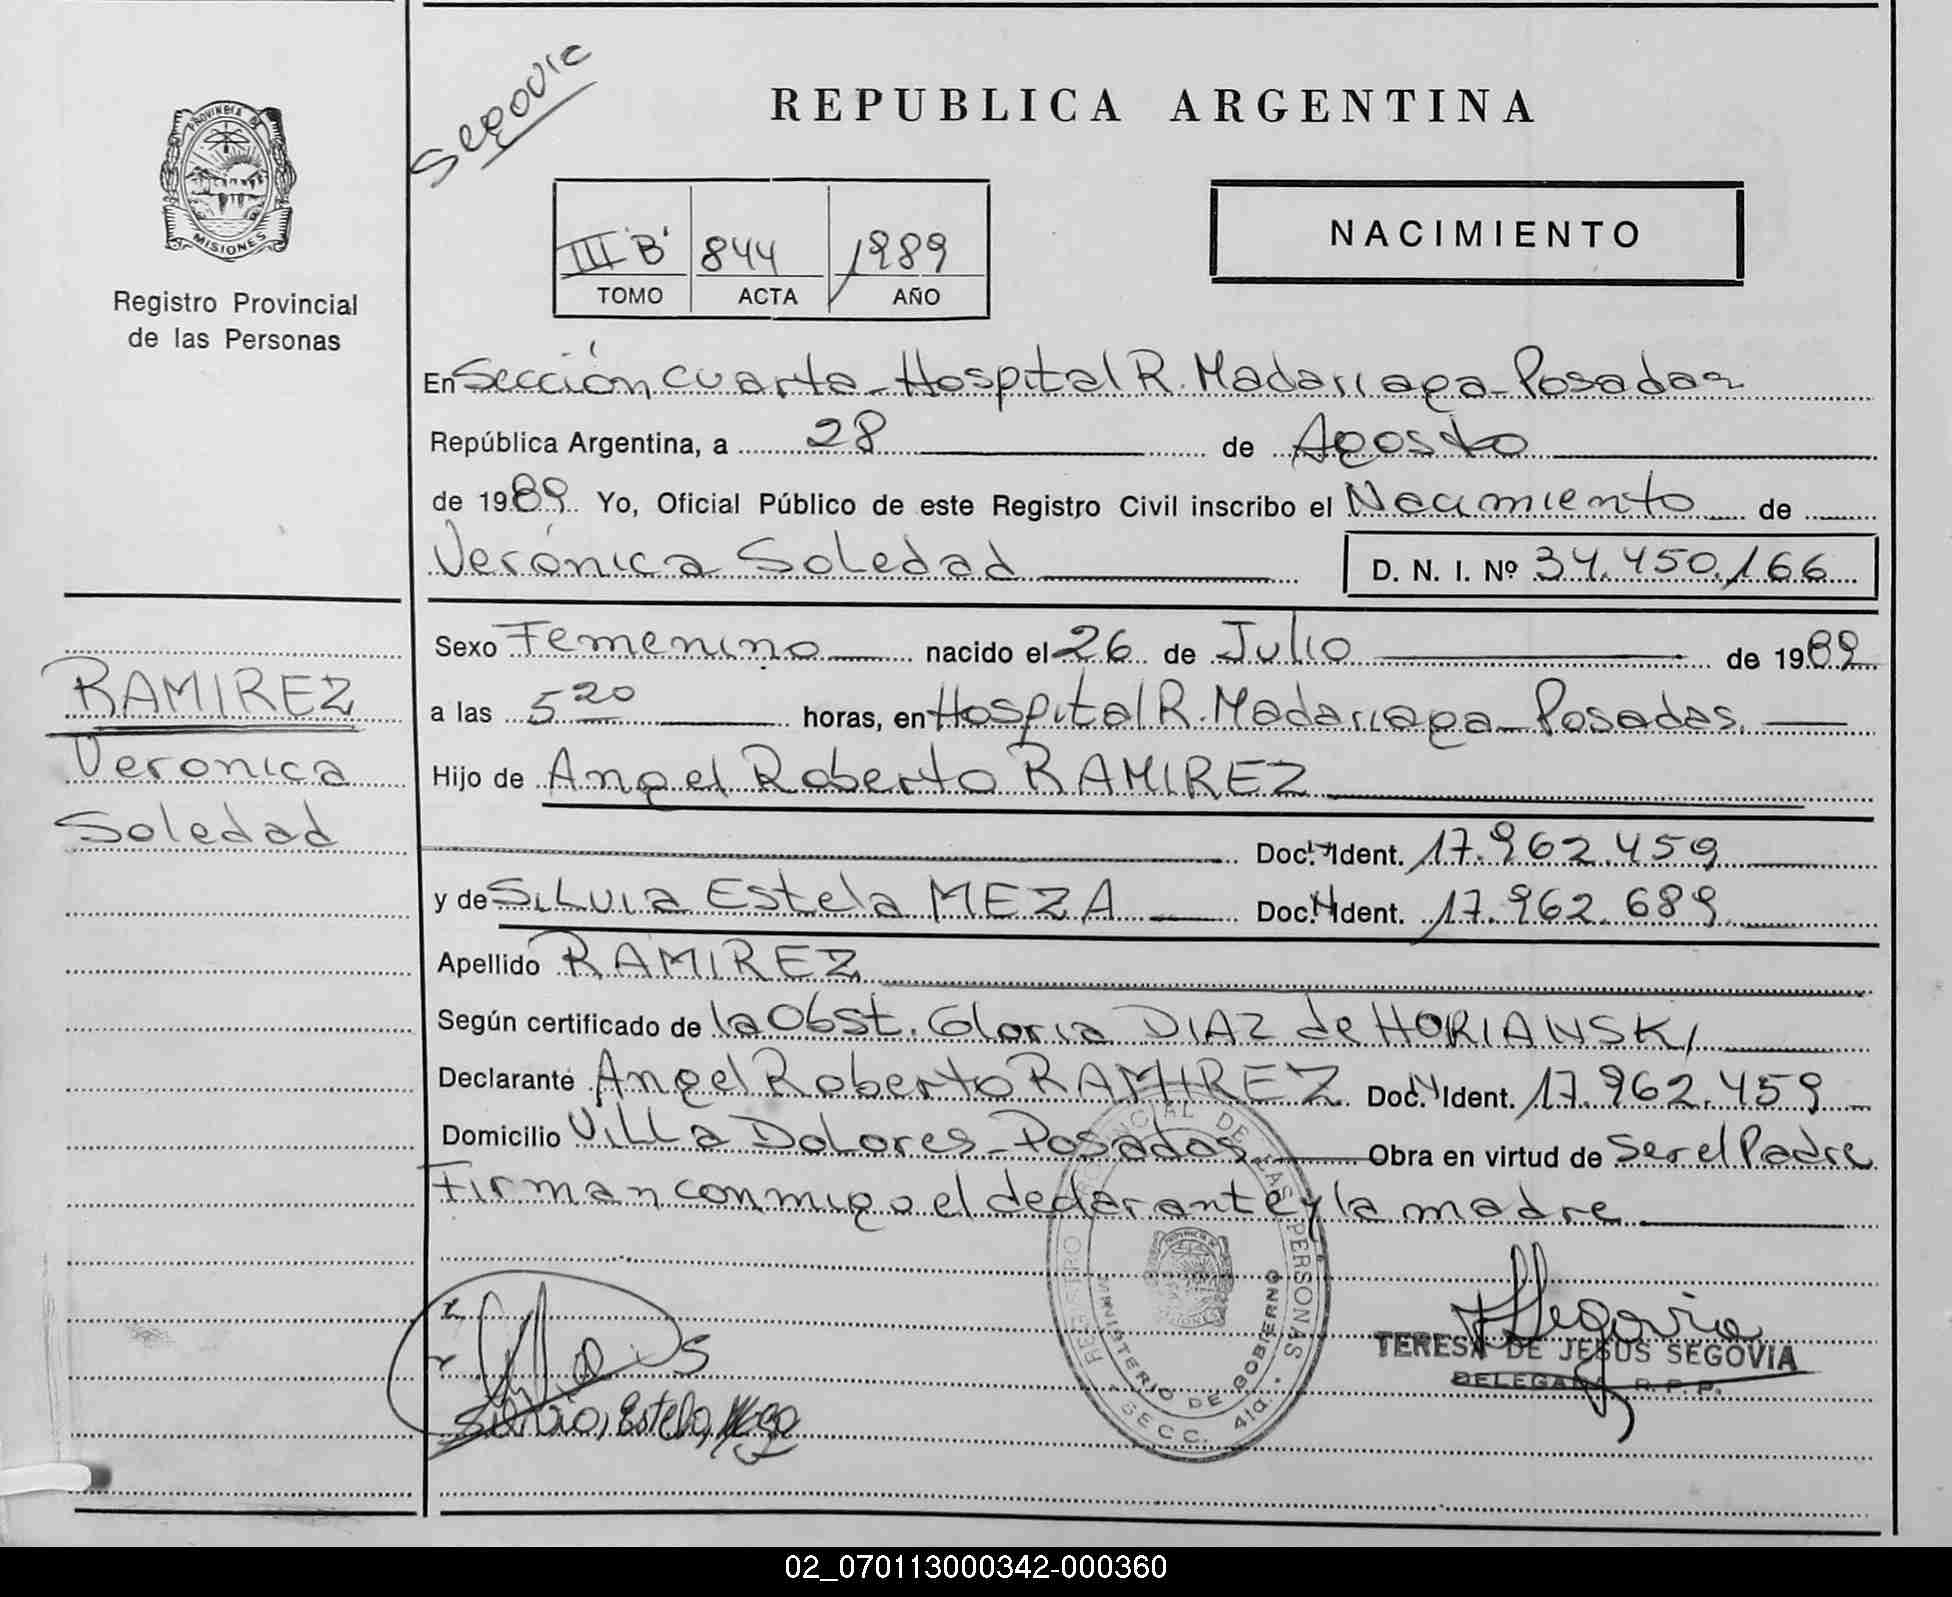 Segovia
REPUBLICA ARGENTINA
PROVINCIA DE
MISIONES
Registro Provincial
de las Personas
NACIMIENTO
III 'B' 844 1989
TOMO ACTA AÑO
En Sección cuarta - Hospital R. Madariaga - Posadas
República Argentina, a 28 de Agosto
de 1989 Yo, Oficial Público de este Registro Civil inscribo el Nacimiento de
Verónica Soledad D. N. I. Nº 34.450.166
Sexo Femenino nacido el 26 de Julio de 1989
a las 5 20 horas, en Hospital R. Madariaga - Posadas.
Hijo de Angel Roberto RAMIREZ
Doc. Ident. 17.962.459
y de Silvia Estela MEZA Doc. Ident. 17.962.689
Apellido RAMIREZ
Según certificado de la Obst. Gloria DIAZ de HORIANSKI
Declarante Angel Roberto RAMIREZ Doc. Ident. 17.962.459
Domicilio Villa Dolores - Posadas Obra en virtud de Ser el Padre
Firman conmigo el declarante y la madre
RAMIREZ
Veronica
Soledad
REGISTRO PROVINCIAL DE LAS PERSONAS
MINISTERIO DE GOBIERNO
SECC. 4ta.
Silvia, Estela, Meza
Segovia
TERESA DE JESUS SEGOVIA
DELEGADA R. P. P.
02_070113000342-000360